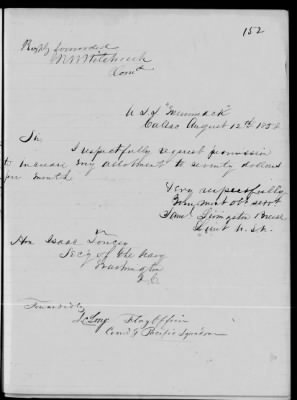 152
Respy forwarded
R B Hitchcock
Comd
U S S "Merrimack"
Callao August 12th 1858
Sir
I respectfully request permission
to increase my allotment to seventy dollars
per month.
Very respectfully
Your most obt servt
Saml Livingston Breese
Lieut U.S.N.
Hon Isaac Toucey
Secy of the Navy
Washington
D.C.
Forwarded
J C Long Flag Officer
Comdg Pacific Squadron